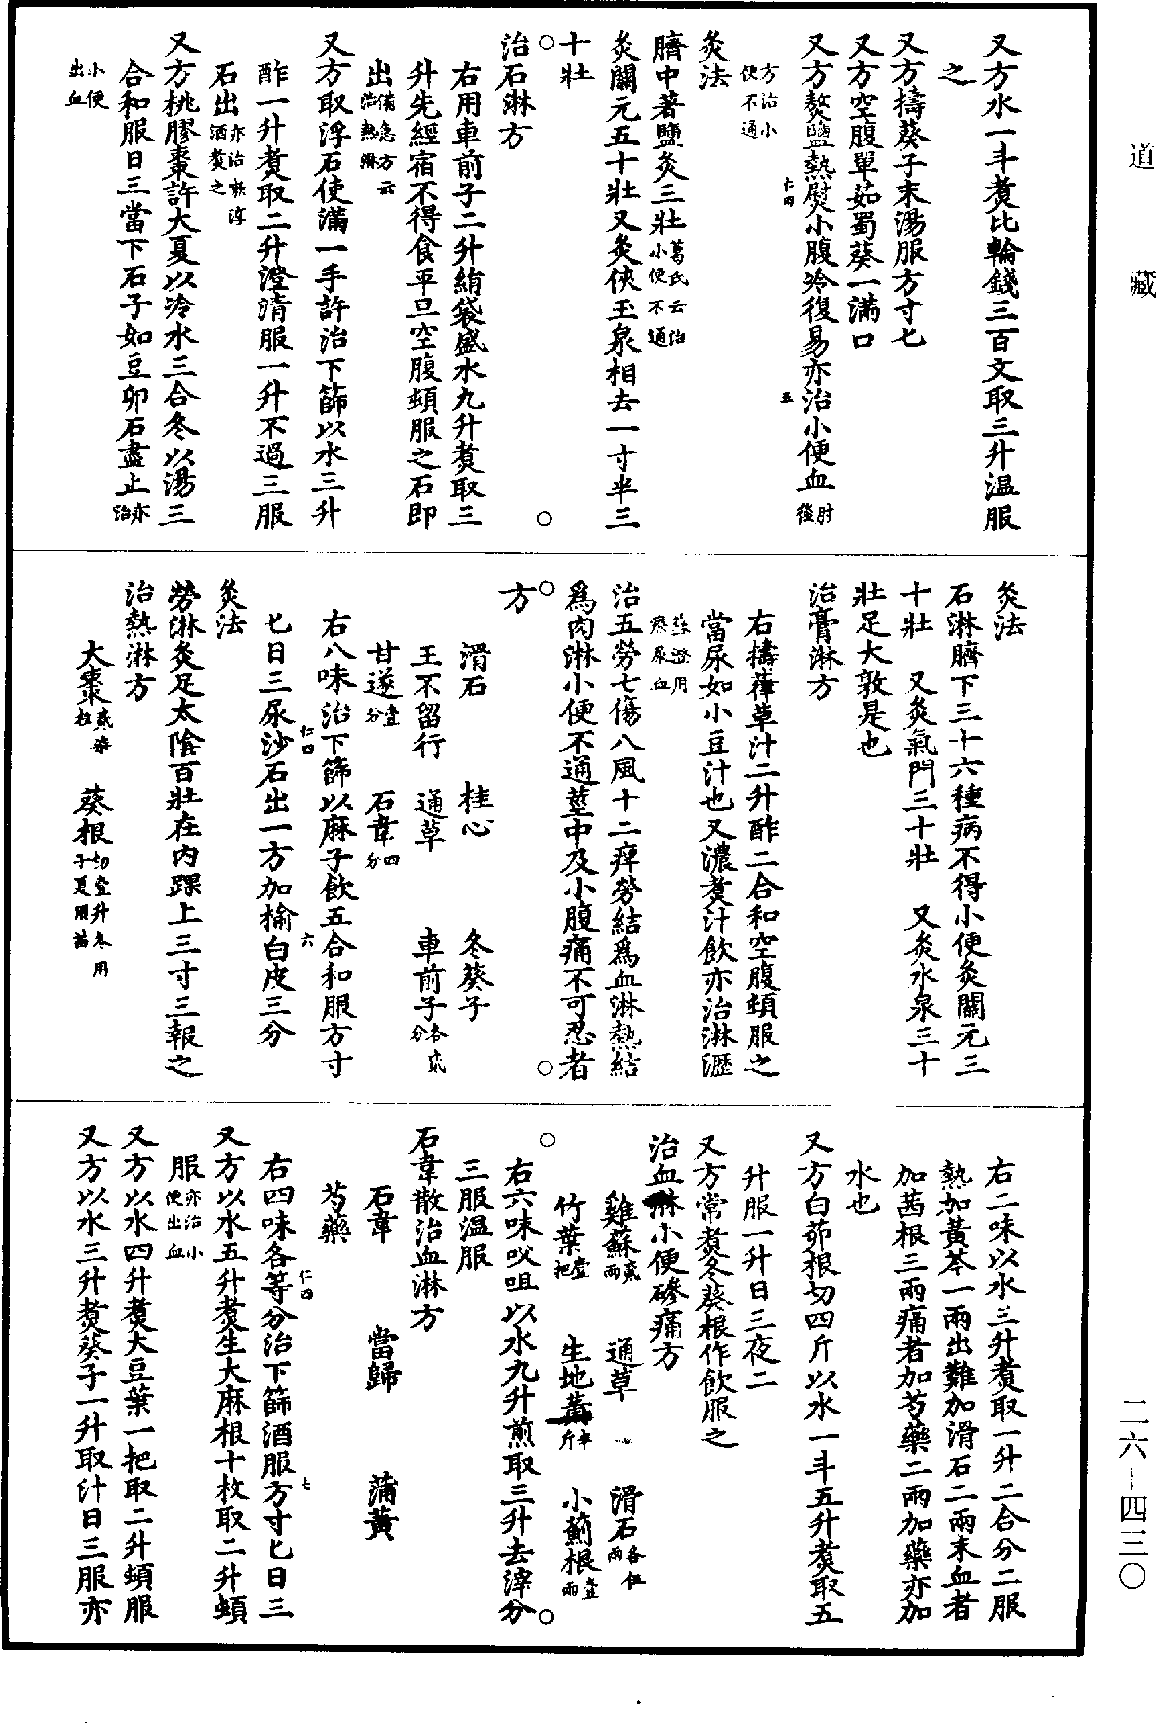 道藏
又方水一斗煮比輪錢三百文取三升温服
之
又方擣葵子末湯服方寸七
又方空腹單茹蜀葵一滿口
又方熬鹽熱熨小腹冷復易亦治小便血肘後
方治小便不通
仁四
五
灸法
臍中著鹽灸三壯葛氏云治小便不通
灸關元五十壯又灸俠玉泉相去一寸半三
十壯
治石淋方
右用車前子二升絹袋盛水九升煮取三
升先經宿不得食平旦空腹頓服之石即
出備急方云治熱淋
又方取浮石使滿一手許治下篩以水三升
酢一升煮取二升澄清服一升不過三服
石出亦治欬淳酒煮之
又方桃膠棗許大夏以冷水三合冬以湯三
合和服日三當下石子如豆卵石盡止亦治
小便出血
灸法
石淋臍下三十六種病不得小便灸關元三
十壯 又灸氣門三十壯 又灸水泉三十
壯足大敦是也
治膏淋方
右擣葎草汁二升酢二合和空腹頓服之
當尿如小豆汁也又濃煮汁飲亦治淋瀝
蘇澄用療尿血
治五勞七傷八風十二痺勞結爲血淋熱結
爲肉淋小便不通莖中及小腹痛不可忍者
方
滑石 桂心 冬葵子
王不留行 通草 車前子各貳分
甘遂壹分 石韋四分
右八味治下篩以麻子飲五合和服方寸
仁四
六
匕日三尿沙石出一方加榆白皮三分
灸法
勞淋灸足太陰百壯在内踝上三寸三報之
治熱淋方
大棗貳柒枚 葵根切壹升冬用子夏用苗
右二味以水三升煮取一升二合分二服
熱加黃芩一兩出難加滑石二兩末血者
加茜根三兩痛者加芍藥二兩加藥亦加
水也
又方白茆根切四斤以水一斗五升煮取五
升服一升日三夜二
又方常煮冬葵根作飲服之
治血淋小便磣痛方
雞蘇貳兩 通草 滑石各伍兩
竹葉壹把 生地黃半斤 小薊根壹兩
右六味㕮咀以水九升煎取三升去滓分
三服温服
石韋散治血淋方
石韋 當歸 蒲黃
芍藥
仁四
七
右四味各等分治下篩酒服方寸匕日三
又方以水五升煮生大麻根十枚取二升頓
服亦治小便出血
又方以水四升煮大豆葉一把取二升頓服
又方以水三升煮葵子一升取汁日三服亦
二六—四三〇